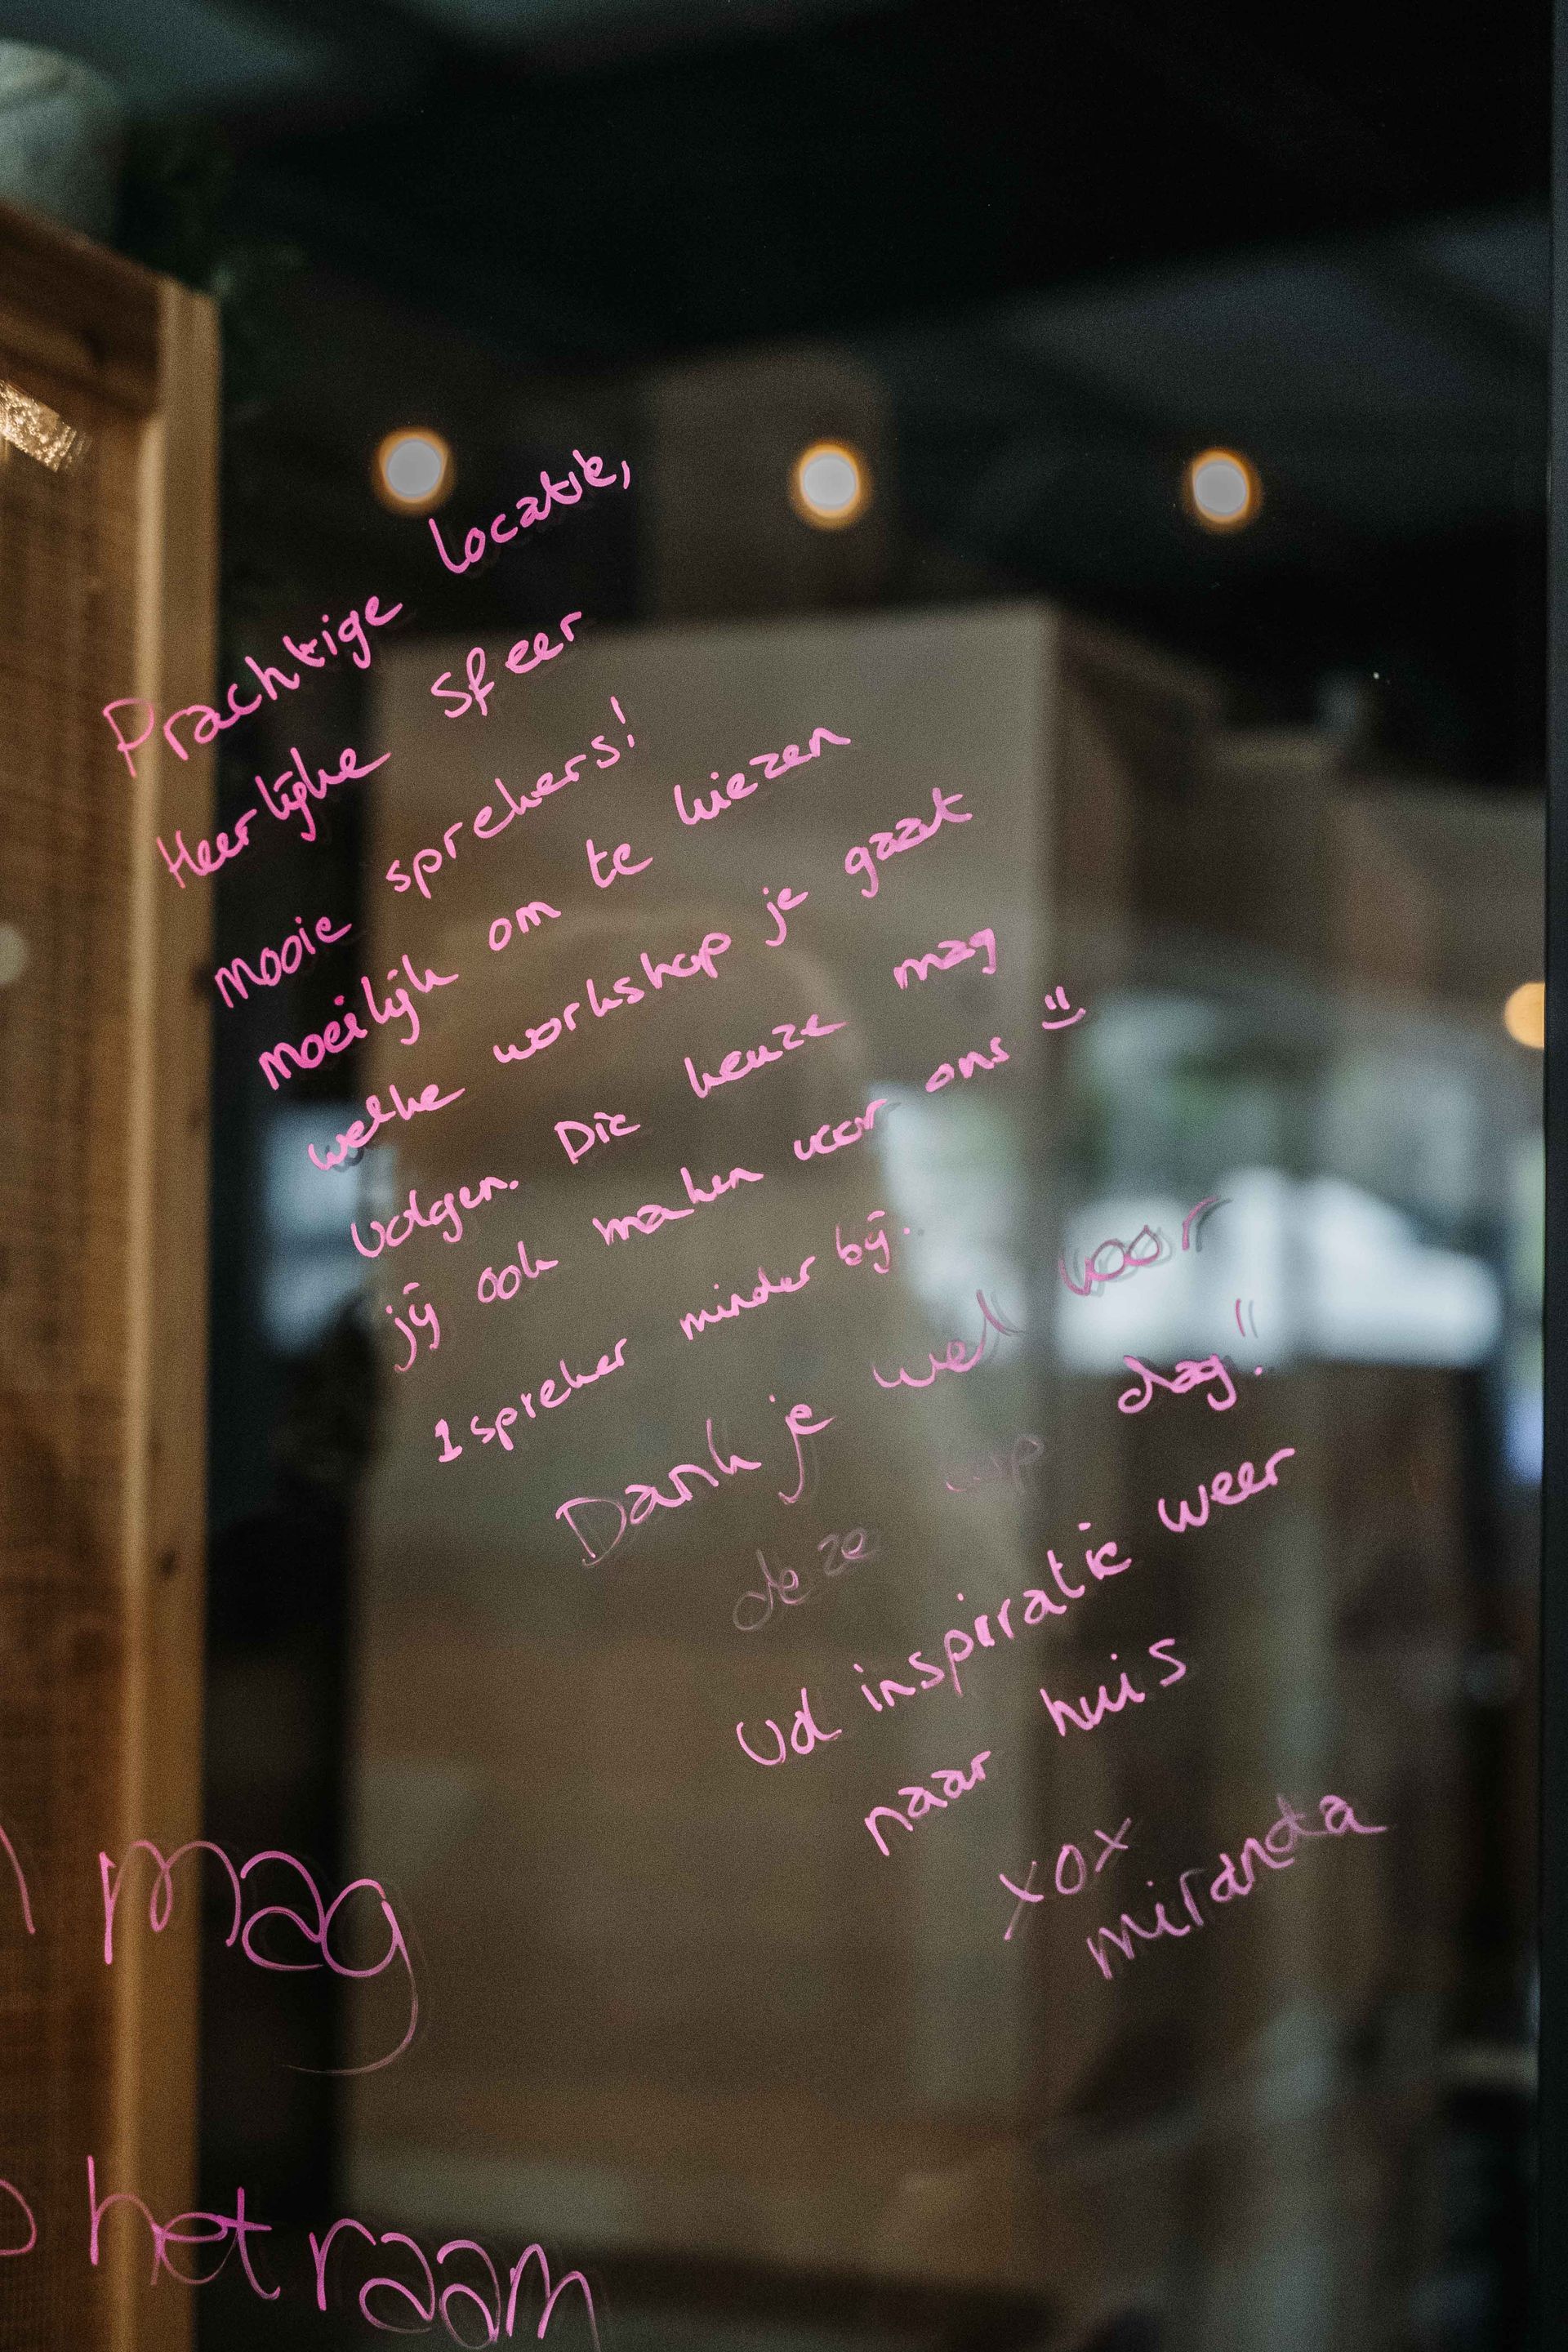 Prachtige locatie,
Heerlijke sfeer
mooie sprekers!
moeilijk om te kiezen
welke workshop je gaat
volgen. Die keuze mag
jij ook maken voor ons
1 spreker minder bij.
Dank je wel voor
deze dag!!
Vol inspiratie weer
naar huis
xox
miranda
mag
het raam